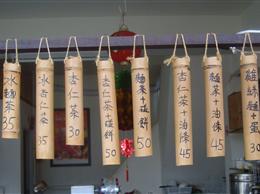 冰麵茶35
冰杏仁茶35
杏仁茶30
杏仁茶+燒餅50
麵茶+燒餅50
杏仁茶+油條45
麵茶+油條45
雞絲麵+蛋30